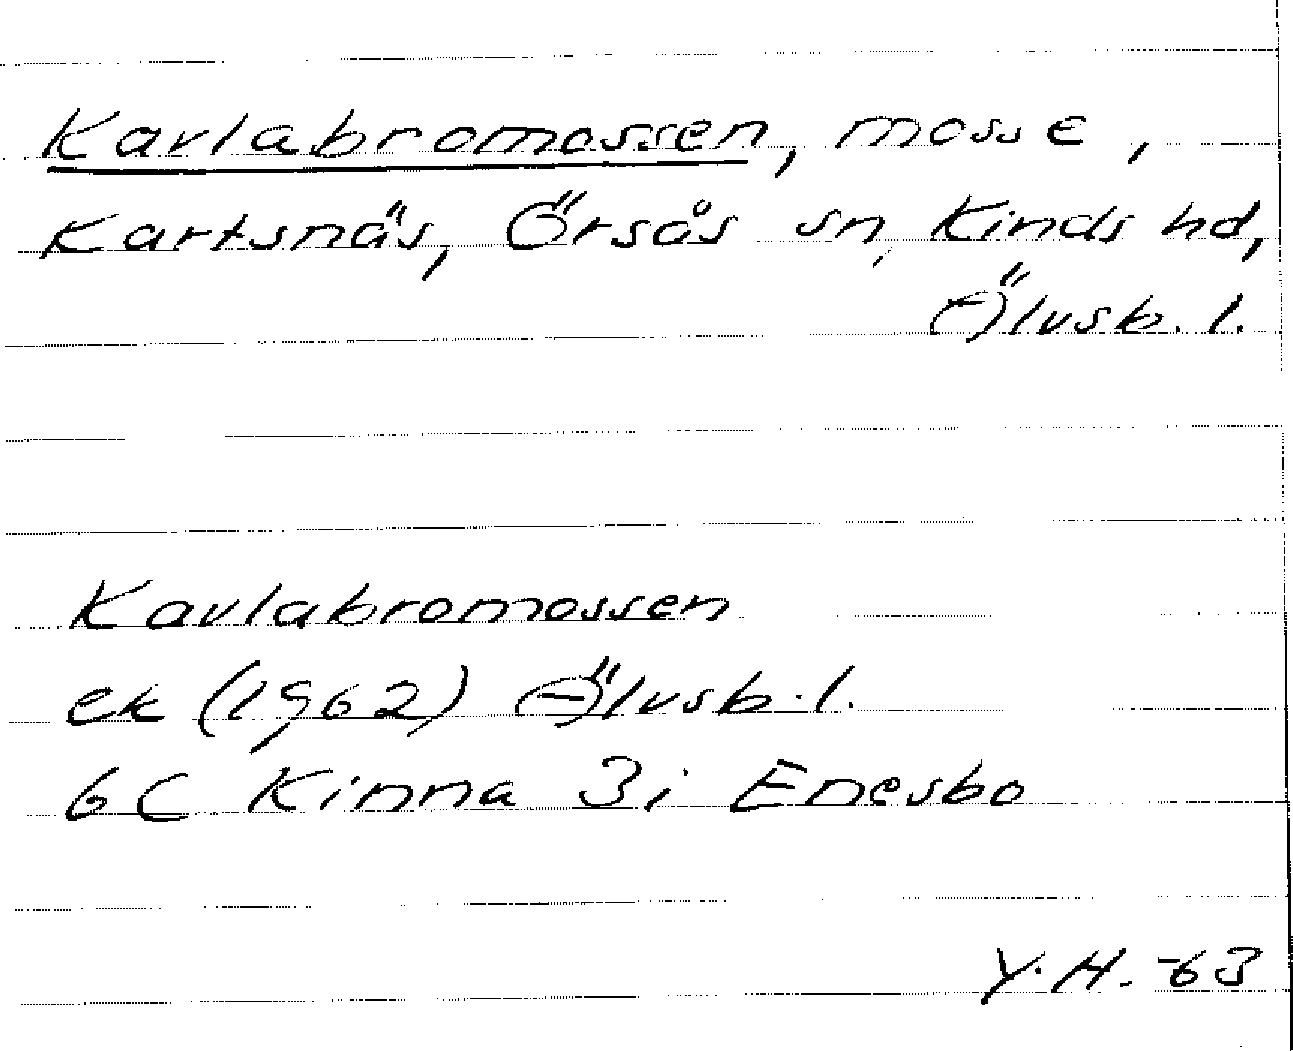 Kavlabromossen, mosse,
Kartsnäs, Örsås sn, Kinds hd,
Älvsb. l.
Kavlabromossen
ek (1962) Älvsb. l.
6C Kinna 3i Enesbo
Y.H. -63